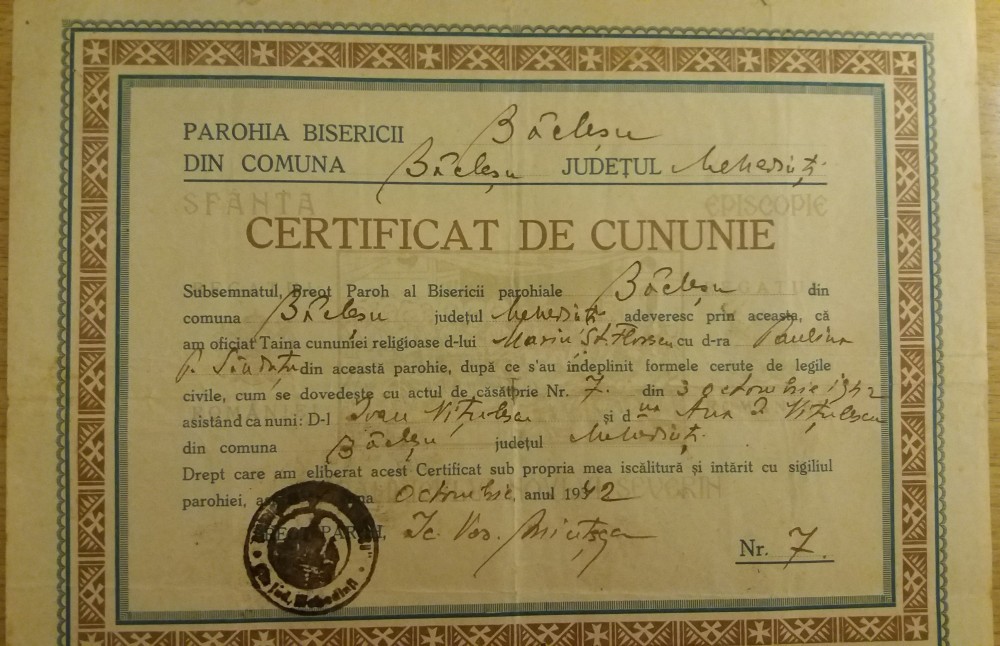 PAROHIA BISERICII Băcleșu
DIN COMUNA Băcleșu JUDEȚUL Mehedinți
SFÂNTA EPISCOPIE
CERTIFICAT DE CUNUNIE
Subsemnatul, Preot Paroh al Bisericii parohiale Băcleșu din
comuna Băcleșu județul Mehedinți adeveresc prin aceasta, că
am oficiat Taina cununiei religioase d-lui Marin St. Florescu cu d-ra Paulina
P. din această parohie, după ce s'au îndeplinit formele cerute de legile
civile, cum se dovedește cu actul de căsătorie Nr. 7. din 3 octombrie 1942
asistând ca nuni: D-l Ioan Vițulescu și d na Ana I. Vițulescu
din comuna Băcleșu județul Mehedinți.
Drept care am eliberat acest Certificat sub propria mea iscălitură și intărit cu sigiliul
parohiei, Octombrie, anul 1942
SEVERIN
PAROH,
Nr. 7.
Jud. Mehedinți